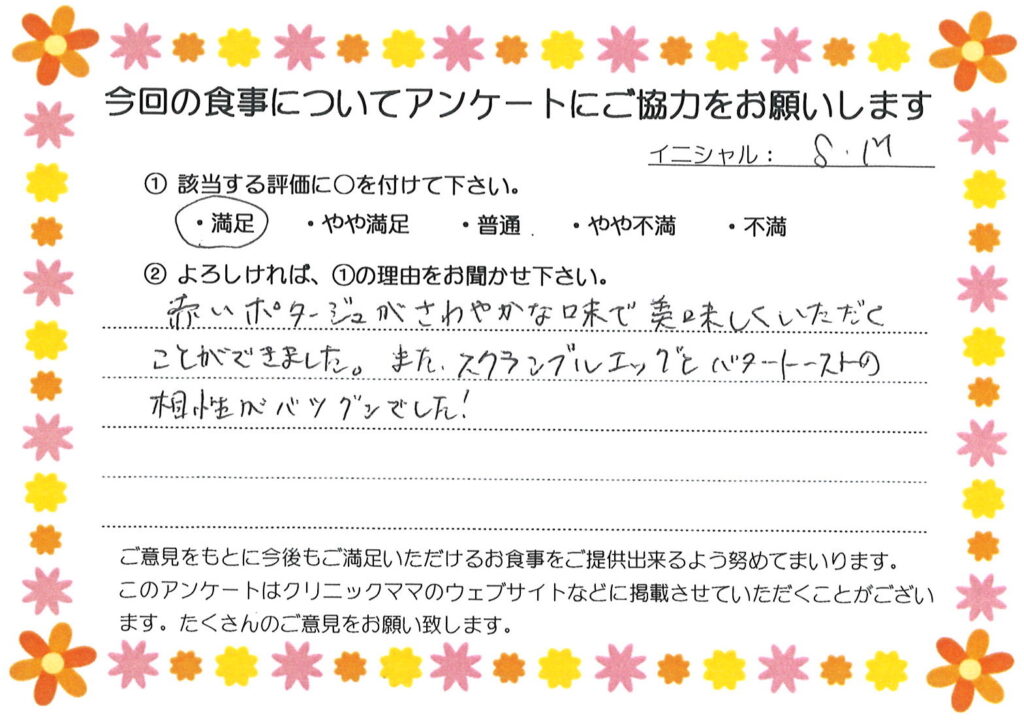 今回の食事についてアンケートにご協力をお願いします
イニシャル： S.M
① 該当する評価に○を付けて下さい。
・満足 ・やや満足 ・普通 ・やや不満 ・不満
② よろしければ、①の理由をお聞かせ下さい。
赤いポタージュがさわやかな味で美味しくいただく
ことができました。また、スクランブルエッグとバタートーストの
相性がバツグンでした！
ご意見をもとに今後もご満足いただけるお食事をご提供出来るよう努めてまいります。
このアンケートはクリニックママのウェブサイトなどに掲載させていただくことがござい
ます。たくさんのご意見をお願い致します。